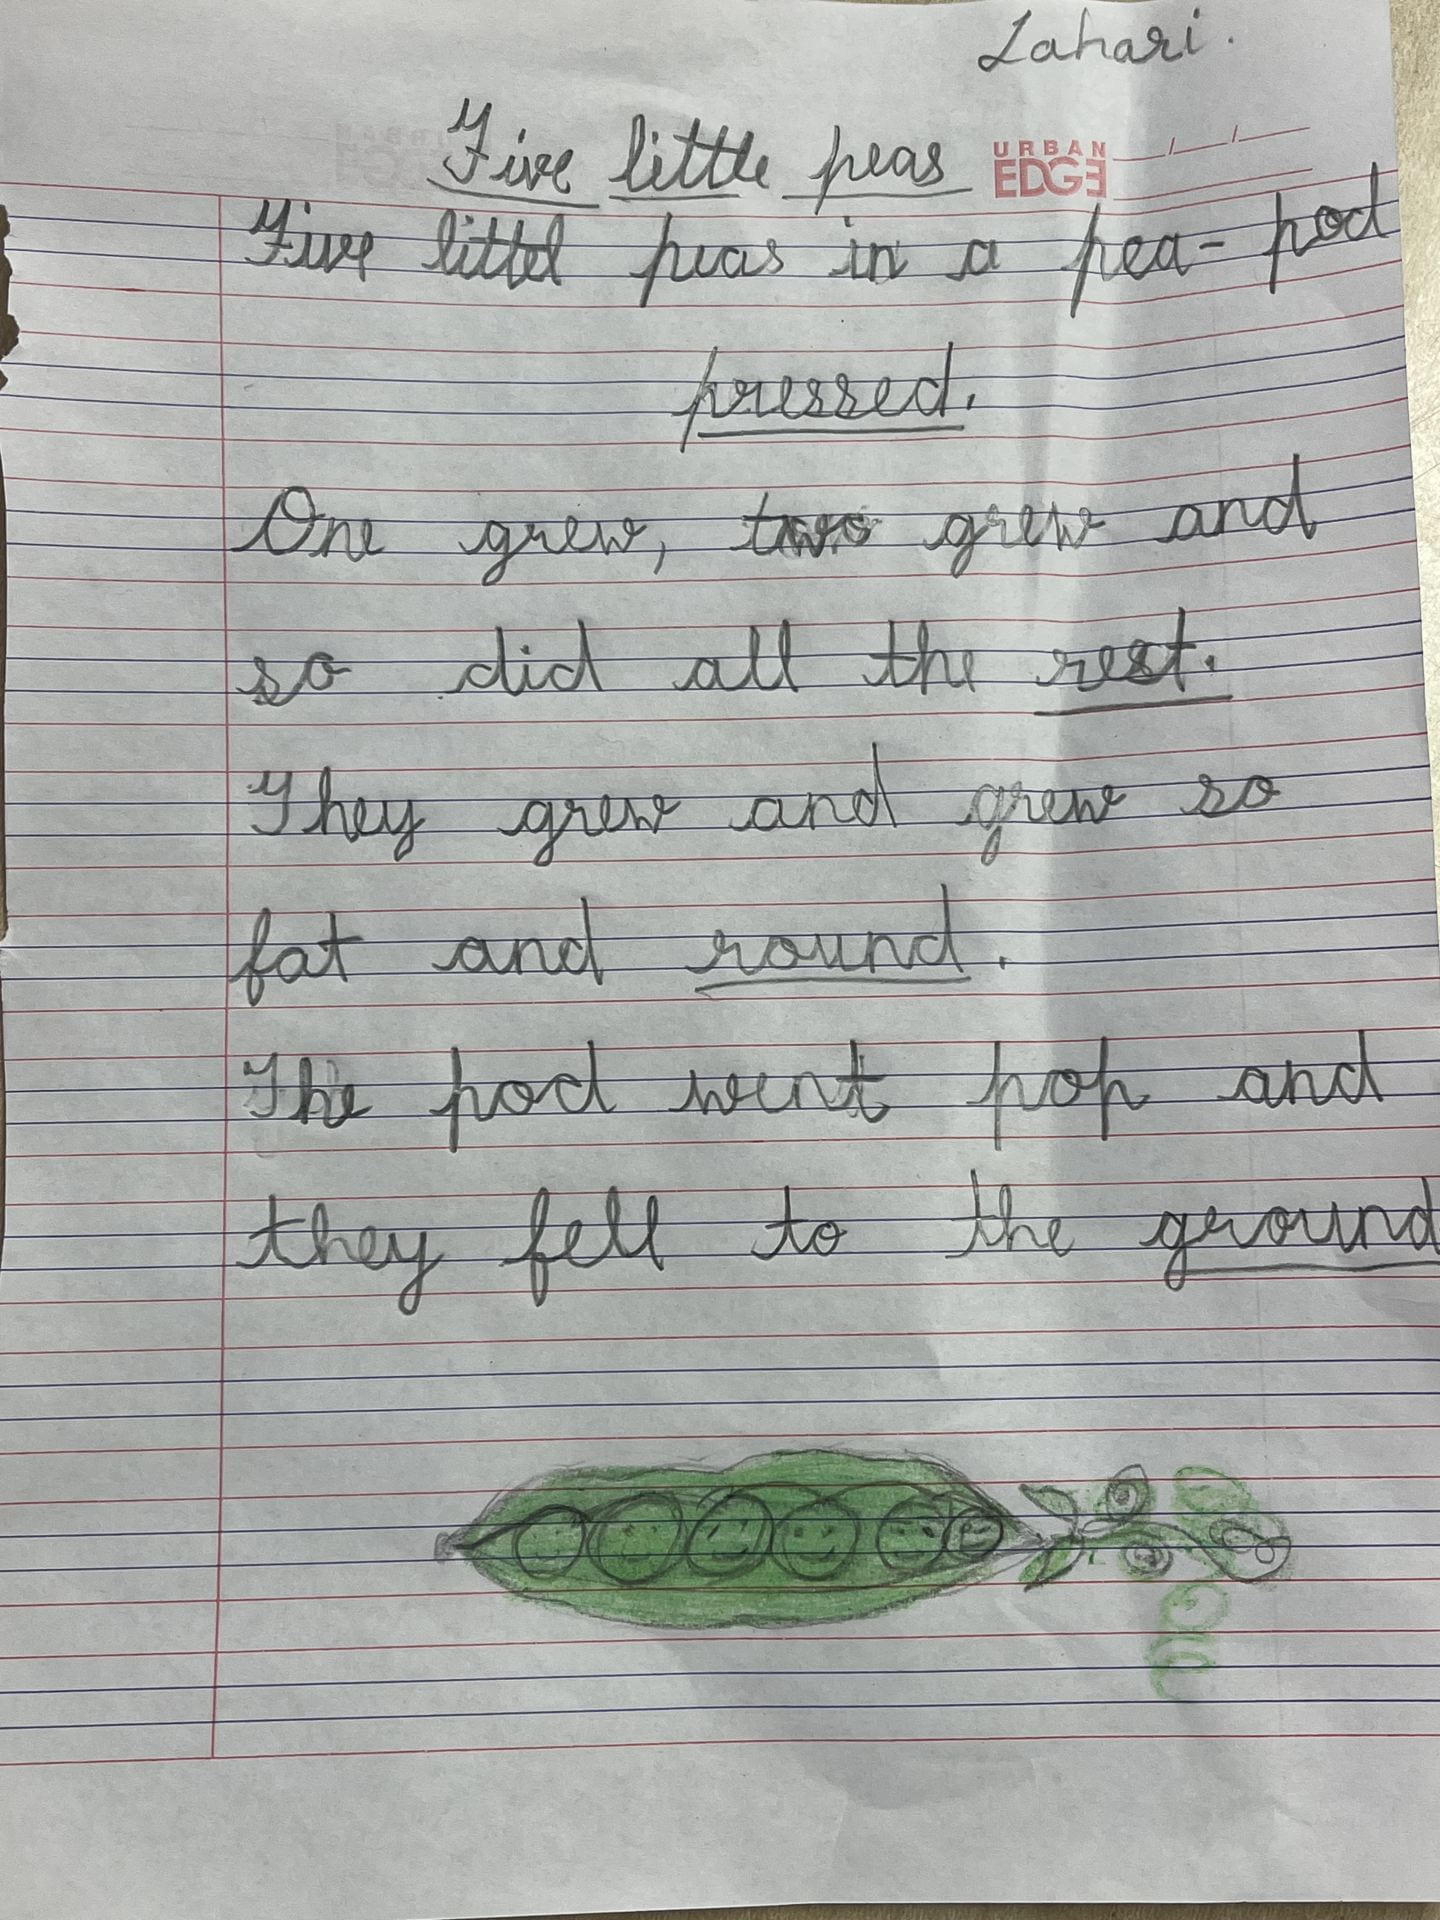 Lahari.
Five little peas
URBAN
EDGE
Five littel peas in a pea-pod
pressed.
One grew, two grew and
so did all the rest.
They grew and grew so
fat and round.
The pod went pop and
they fell to the ground